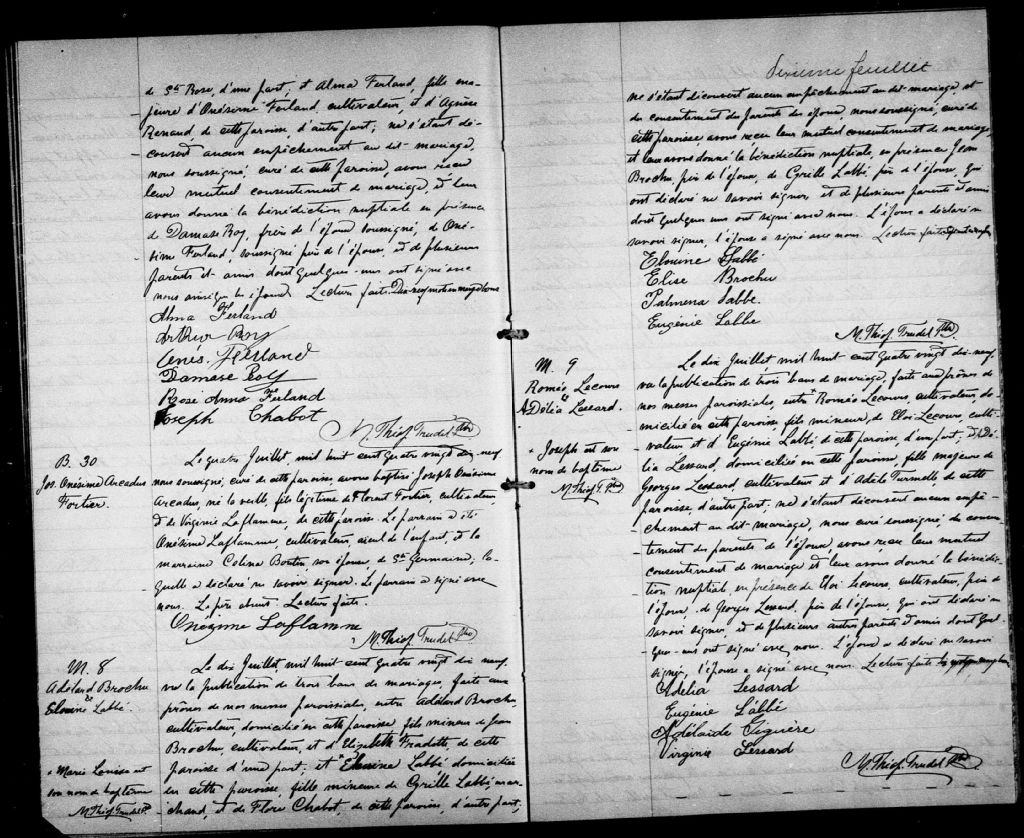 de Ste Rose, d'une part; et Alma Ferland, fille ma-
jeure d'Onésime Ferland, cultivateur, et d'Agnèse
Renaud, de cette paroisse, d'autre part; ne s'étant dé-
couvert aucun empêchement au dit mariage,
nous soussigné, curé de cette paroisse, avons reçu
leur mutuel consentement de mariage, et leur
avons donné la bénédiction nuptiale en présence
de Damase Roy, frère de l'époux soussigné, de Oné-
sime Ferland, soussigné père de l'épouse, et de plusieurs
parents et amis dont quelques-uns ont signé avec
nous ainsi que les époux. Lecture faite.
Alma Ferland
Arthur Roy
Onés. Ferland
Damase Roy
Rose Anna Ferland
Joseph Chabot
M. Thiof. Trudel Ptre
B. 30
Jos. Onésime Arcadius
Fortier.
Le quatre Juillet mil huit cent quatre vingt dix neuf
nous soussigné, curé de cette paroisse, avons baptisé Joseph Onésime
Arcadius, né la veille, fils légitime de Florent Fortier, cultivateur,
et de Virginie Laflamme, de cette paroisse. Le parrain a été
Onésime Laflamme, cultivateur, aieul de l'enfant, et la
marraine Célina Boutin son épouse, de Ste Germaine, la-
quelle a déclaré ne savoir signer. Le parrain a signé avec
nous. Le père absent. Lecture faite.
Onézime Laflamme
M. Thiof. Trudel Ptre
M. 8
Adélard Brochu
&
Elmine Labbé.
+ Marie Louise est
son nom de baptême
M. Thiof. Trudel P.
Le dix Juillet mil huit cent quatre vingt dix neuf,
vu la publication de trois bans de mariages, faite aux
prônes de nos messes paroissiales, entre Adélard Brochu,
cultivateur, domicilié en cette paroisse, fils mineur de Jean
Brochu, cultivateur, et d'Elizabeth Fradette, de cette
paroisse d'une part; et Elmine Labbé domiciliée
en cette paroisse, fille mineure de Cyrille Labbé, mar-
chand, et de Flore Chabot, de cette paroisse, d'autre part;
Sixième feuillet
ne s'étant découvert aucun empêchement au dit mariage, et
du consentement des parents des époux, nous soussigné, curé de
cette paroisse, avons reçu leur mutuel consentement de mariage,
et leur avons donné la bénédiction nuptiale, en présence Jean
Brochu, père de l'époux, de Cyrille Labbé, père de l'épouse, qui
ont déclaré ne savoir signer, et de plusieurs parents et amis
dont quelques uns ont signé avec nous. L'époux a déclaré ne
savoir signer, l'épouse a signé avec nous. Lecture faite
Elmine Labbé
Elise Brochu
Palmena Labbe.
Eugénie Labbe
M. Thiof. Trudel Ptre
M. 9
Roméo Lecours
&
Adélia Lessard.
+ Joseph est son
nom de baptême
M. Thiof T. Ptre
Le dix Juillet mil huit cent quatre vingt dix-neuf
vu la publication de trois bans de mariage, faite aux prônes de
nos messes paroissiales, entre + Roméo Lecours, cultivateur, do-
micilié en cette paroisse, fils mineur de Eloi Lecours, culti-
vateur et d'Eugénie Labbé de cette paroisse, d'une part, et Adé-
lia Lessard, domiciliée en cette paroisse, fille majeure de
Georges Lessard cultivateur et d'Adèle Turmelle de cette
paroisse, d'autre part; ne s'étant découvert aucun empê-
chement au dit-mariage, nous curé soussigné, du consen-
tement des parents de l'époux, avons reçu leur mutuel
consentement de mariage et leur avons donné la bénédic-
tion nuptiale en présence de Eloi Lecours, cultivateur, père de
l'époux, de Georges Lessard, père de l'épouse, qui ont déclaré ne
savoir signer, et de plusieurs autres parents et amis dont quel-
ques-uns ont signé avec nous. L'époux a déclaré ne savoir
signer, l'épouse a signé avec nous. Lecture faite
Adelia Lessard
Eugénie Labbé
Adélaïde Giguère
Virginie Lessard
M. Thiof. Trudel Ptre